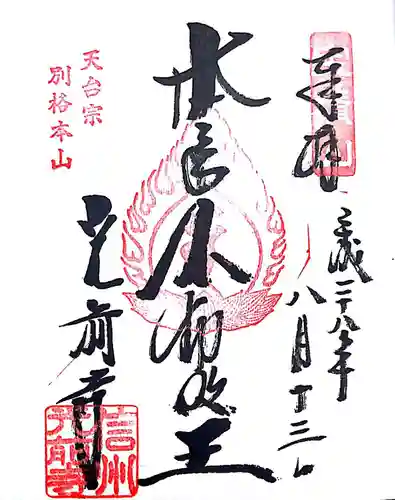 奉拝
平成二十八年
八月十三日
本尊不動明王
天台宗
別格本山
光前寺
信州
光前寺